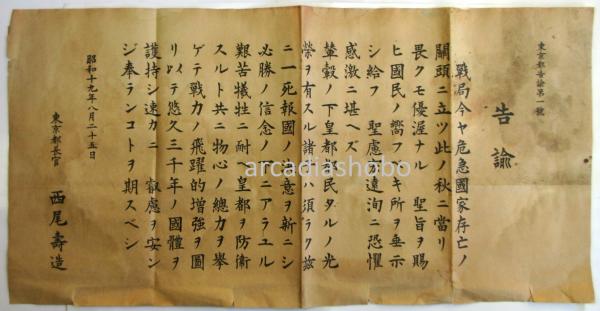 東京都告諭第一號
告諭
戰局今ヤ危急國家存亡ノ
關頭ニ立ツ此ノ秋ニ當リ
畏クモ優渥ナル 聖旨ヲ賜
ヒ國民ノ嚮フベキ所ヲ垂示
シ給フ 聖慮宏遠洵ニ恐懼
感激ニ堪ヘズ
輦轂ノ下皇都都民タルノ光
榮ヲ有スル諸子ハ須ラク茲
ニ一死報國ノ決意ヲ新ニシ
必勝ノ信念ノ下ニアラユル
艱苦犠牲ニ耐ヘ皇都ヲ防衞
スルト共ニ物心ノ總力ヲ擧
ゲテ戰力ノ飛躍的增強ヲ圖
リ以テ悠久三千年ノ國體ヲ
護持シ速カニ 叡慮ヲ安ン
ジ奉ランコトヲ期スベシ
昭和十九年八月二十五日
東京都長官 西尾壽造
arcadiashobo